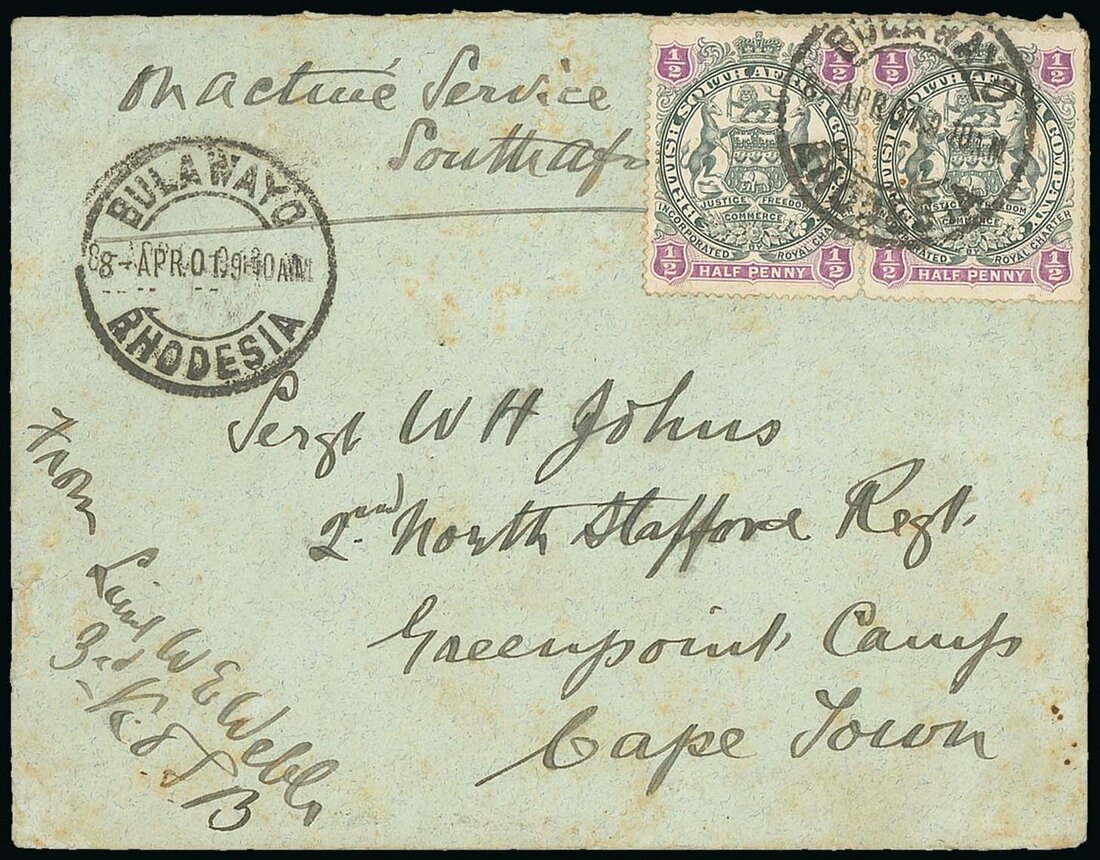 On active Service
South Afr
BULAWAYO
8 APR 01 9 10 AM
RHODESIA
½ ½
BRITISH SOUTH AFRICA COMPANY
JUSTICE FREEDOM
COMMERCE
INCORPORATED BY ROYAL CHARTER
½ ½
HALF PENNY
½ ½
BRITISH SOUTH AFRICA COMPANY
JUSTICE FREEDOM
COMMERCE
INCORPORATED BY ROYAL CHARTER
½ ½
HALF PENNY
BULAWAYO
APR 01
Sergt W H Johns
2nd North Stafford Regt.
Greenpoint Camp
Cape Town
From
Lieut W E Webb
3rd